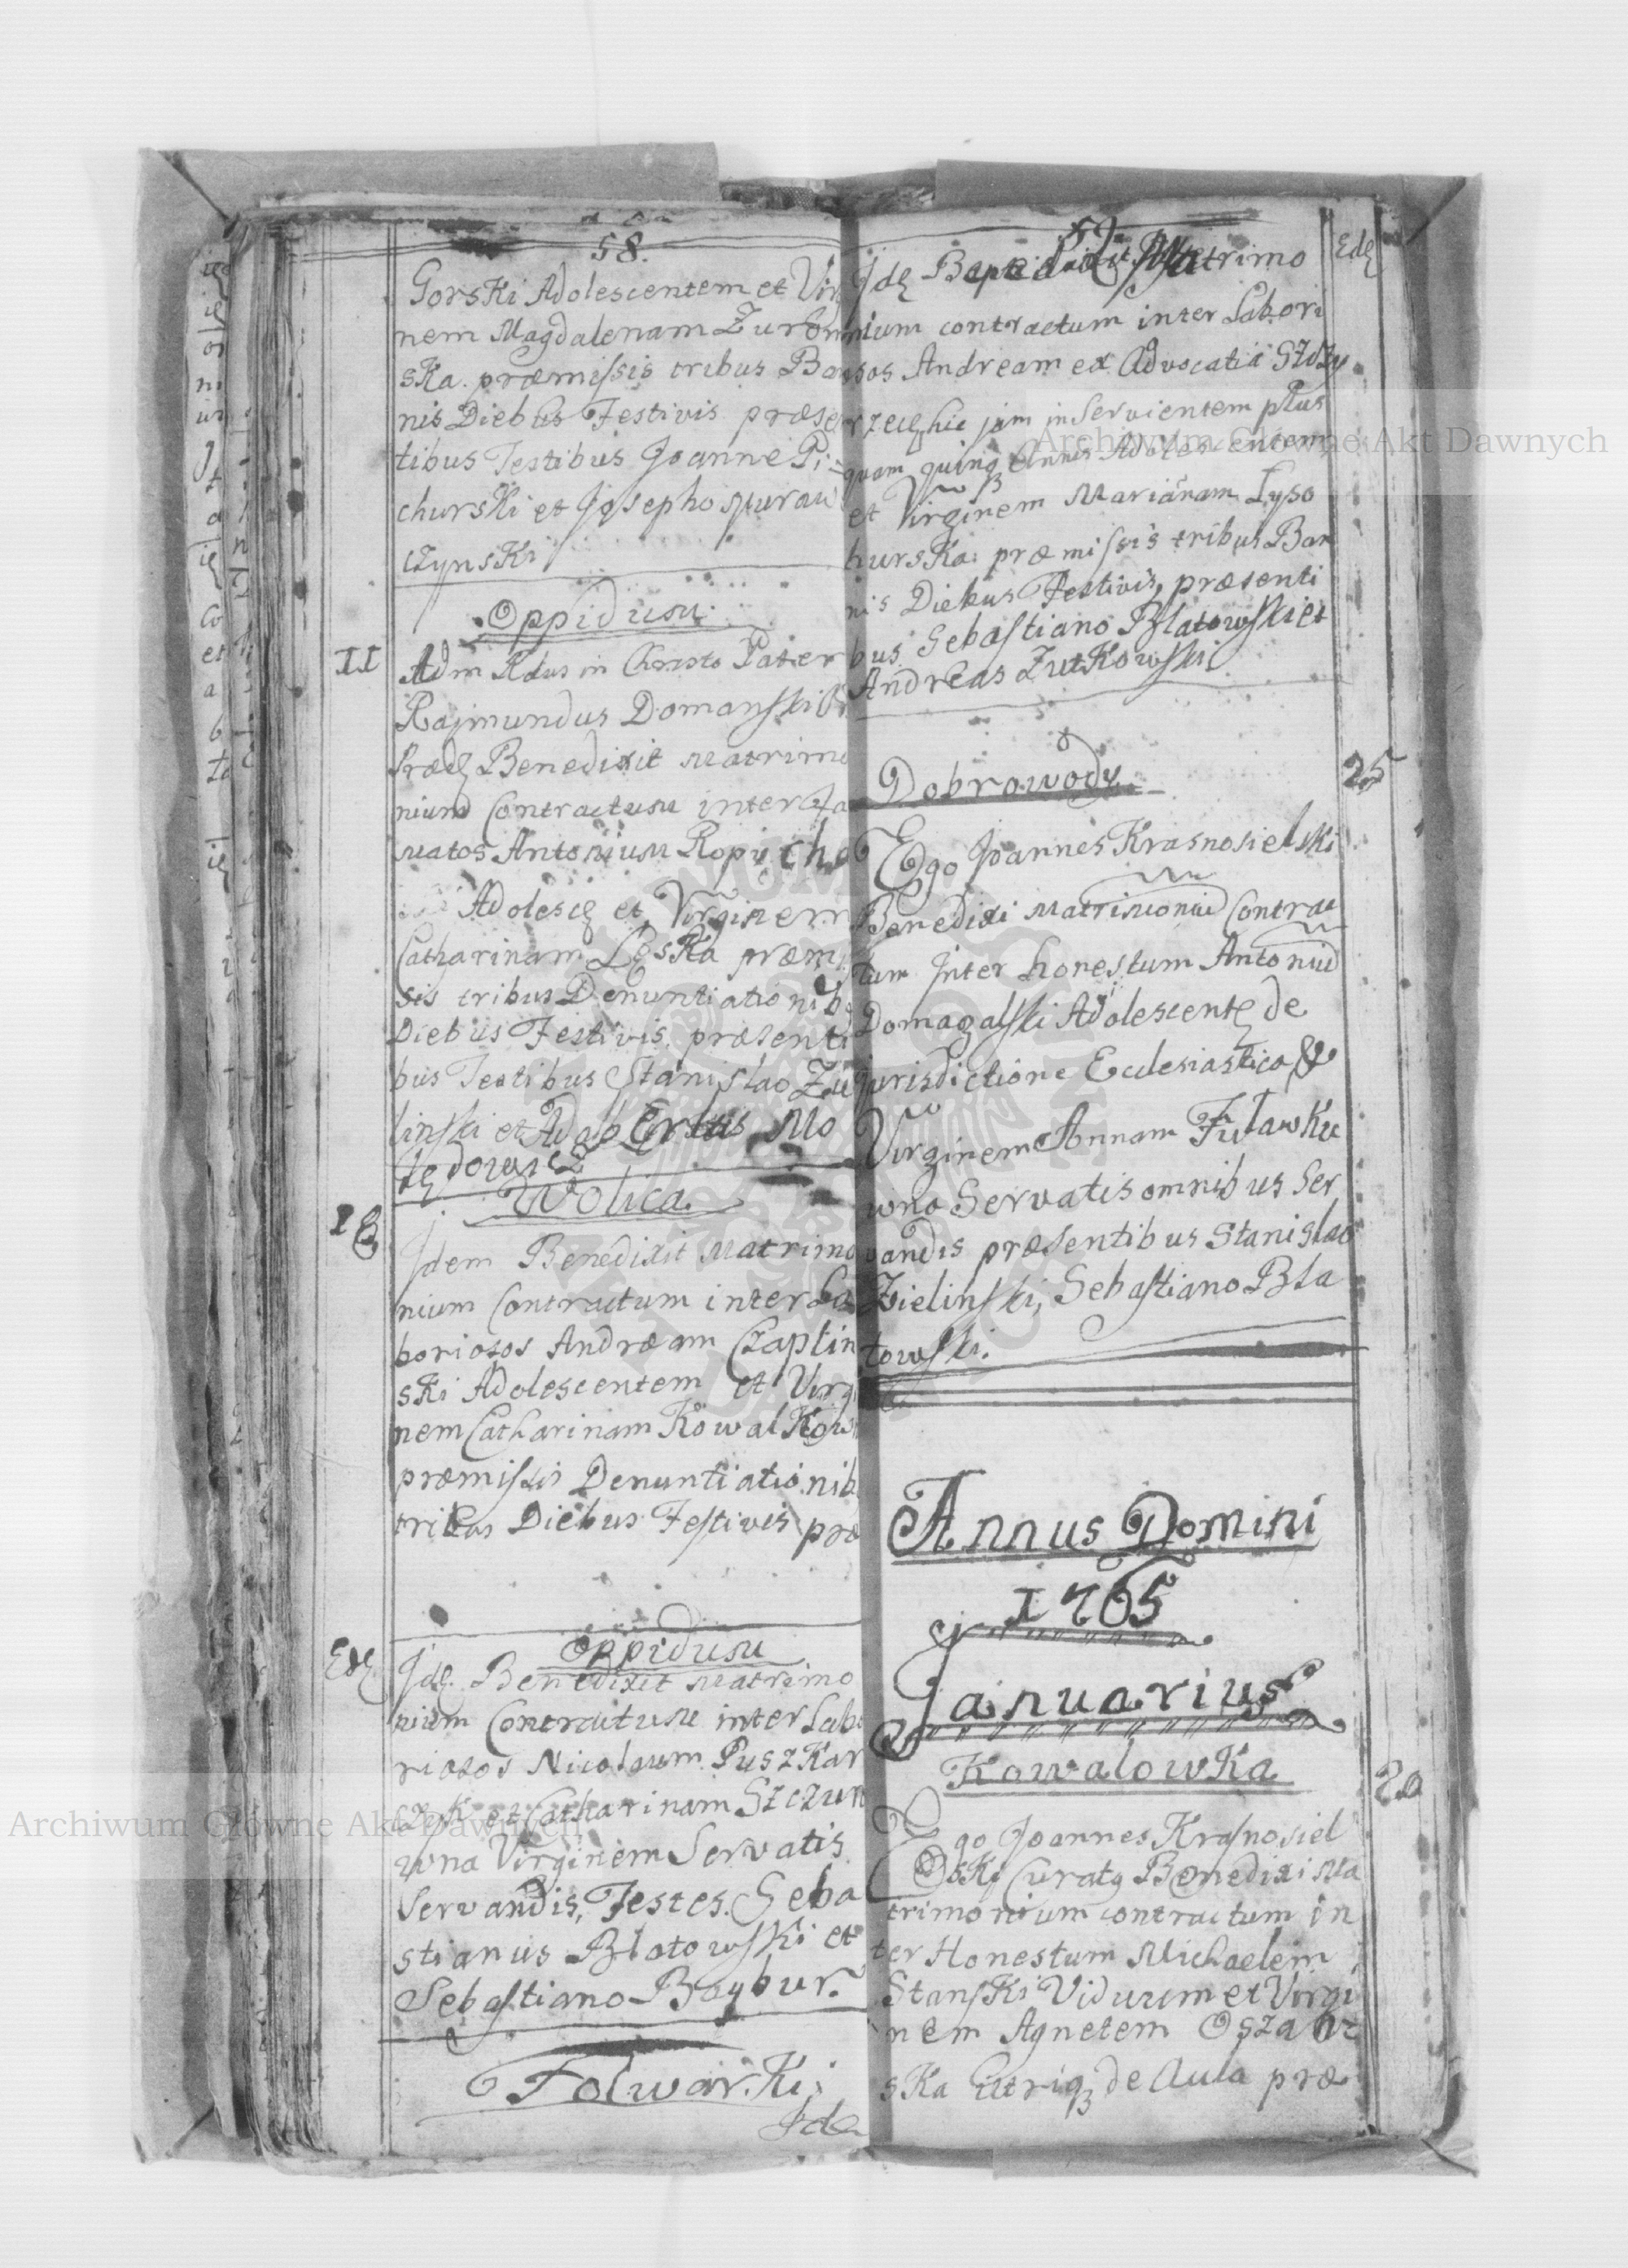 58.
Gorski Adolescentem et Vir
nem Magdalenam Zurom
ska. præmissis tribus Ban
nis Diebus Festivis præsen
tibus Testibus Joanne Pi
churski et Josepho Muraw
czynski
Oppidum
II
Adm Rdus in Christo Pater
Rajmundus Domanski
Præd Benedixit Matrimo
nium Contractum inter Fa
matos Antonium
Adolesc et Virginem
Catharinam Leska præmis
sis tribus Denuntiationib
Diebus Festivis præsenti
bus Testibus Stanislao Zie
linski et Mo
Wolica.
18
Idem Benedixit Matrimo
nium Contractum inter La
boriosos Andræam Czaplin
ski Adolescentem et Virgi
nem Catharinam Kowalkow
præmissis Denuntiationib
tribus Diebus Festivis præ
Oppidum
Ide
Ide Benedixit Matrimo
nium Contractum inter Labo
riosos Nicolaum Puszkar
czyk et Catharinam Szczur
wna Virginem Servatis
Servandis, Testes. Seba
stianus Blatowski et
Sebastiano Baybur.
Folwarki
Ide
59.
Ide Benedixit Matrimo
nium contractum inter Labori
osos Andream ex Advocatia
hic jam inservientem plus
quam quinq Annis Adolescentem
et Virginem Mariānam Lyso
hurska præmissis tribus Ban
nis Diebus Festivis, præsenti
bus Sebastiano Blatowski et
Andreas Zutkowski
Dobrowody
25
Ego Joannes Krasnosielski
Benedixi Matrimoniū Contrac
tum Inter honestum Antoniū
Domagalski Adolescente de
jurisdictione Ecclesiastica &
Virginem Annam Fuławku
wna Servatis omnibus Ser
vandis præsentibus Stanislao
Zielinski, Sebastiano Bla
towski.
Annus Domini
1765
Januarius
Kowalowka
20
Ego Joannes Krasnosiel
ski Curatq Benedixi Ma
trimonium contractum in
ter Honestum Michaelem
Stanski Viduum et Virgi
nem Agnetem
ska Utriq de Aula præ
Archiwum Główne Akt Dawnych
Archiwum Główne Akt Dawnych